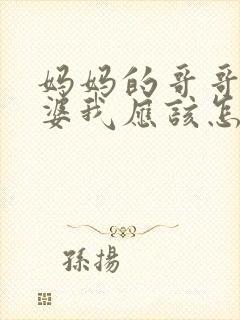 妈妈的哥哥
婆我應該怎
孫揚